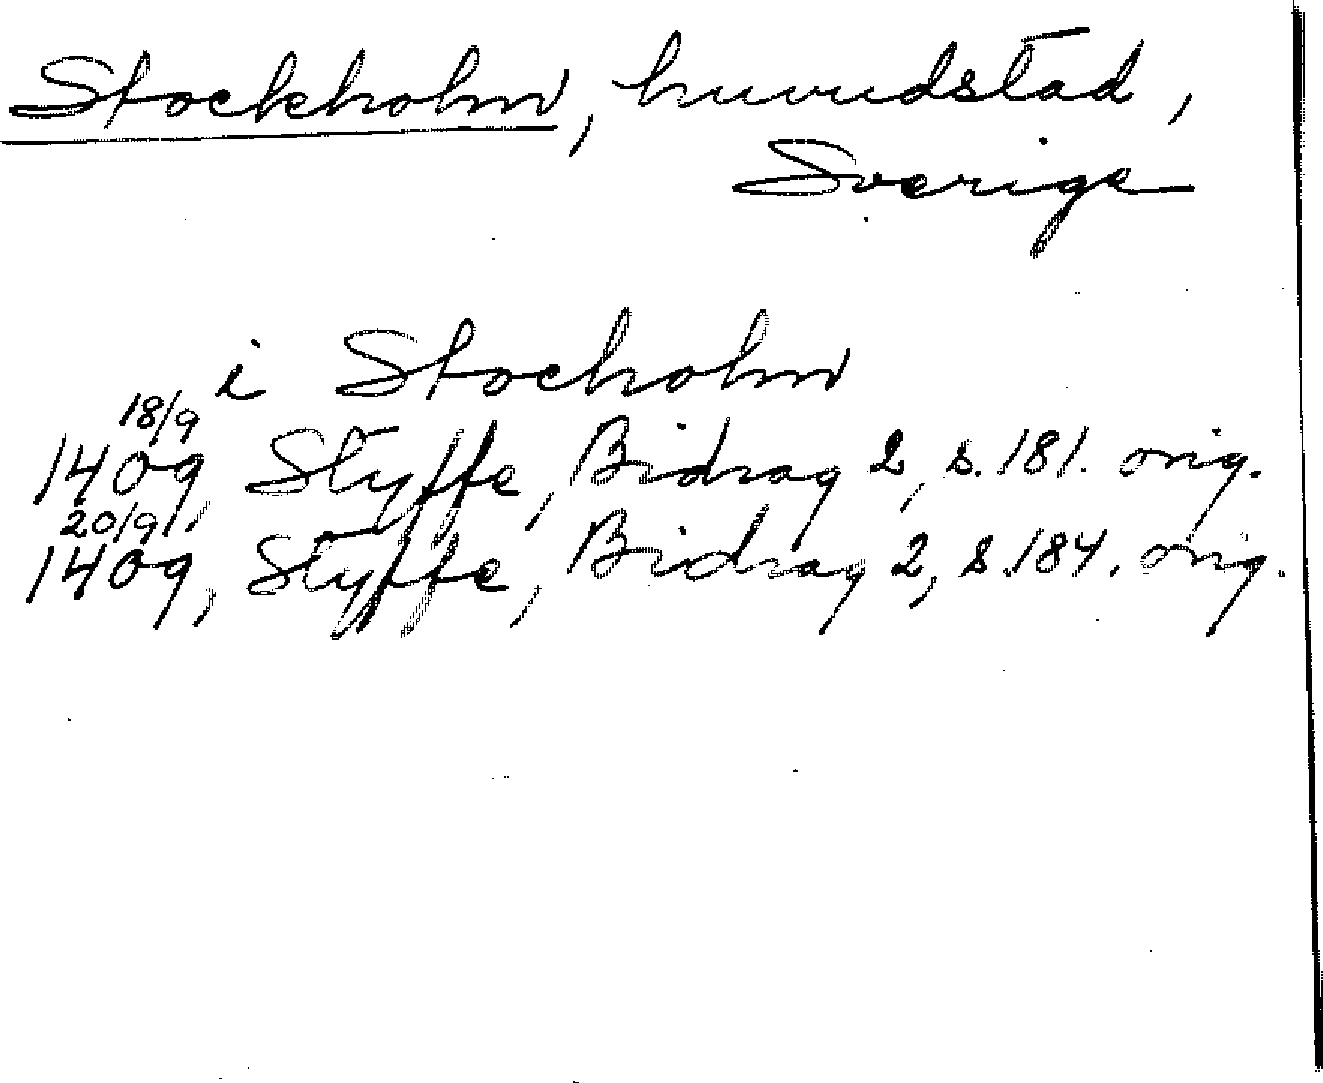 Stockholm, huvudstad,
Sverige
i Stocholm
18/9
1409, Styffe, Bidrag 2, s. 181. orig.
20/9
1409, Styffe, Bidrag 2, s. 184. orig.